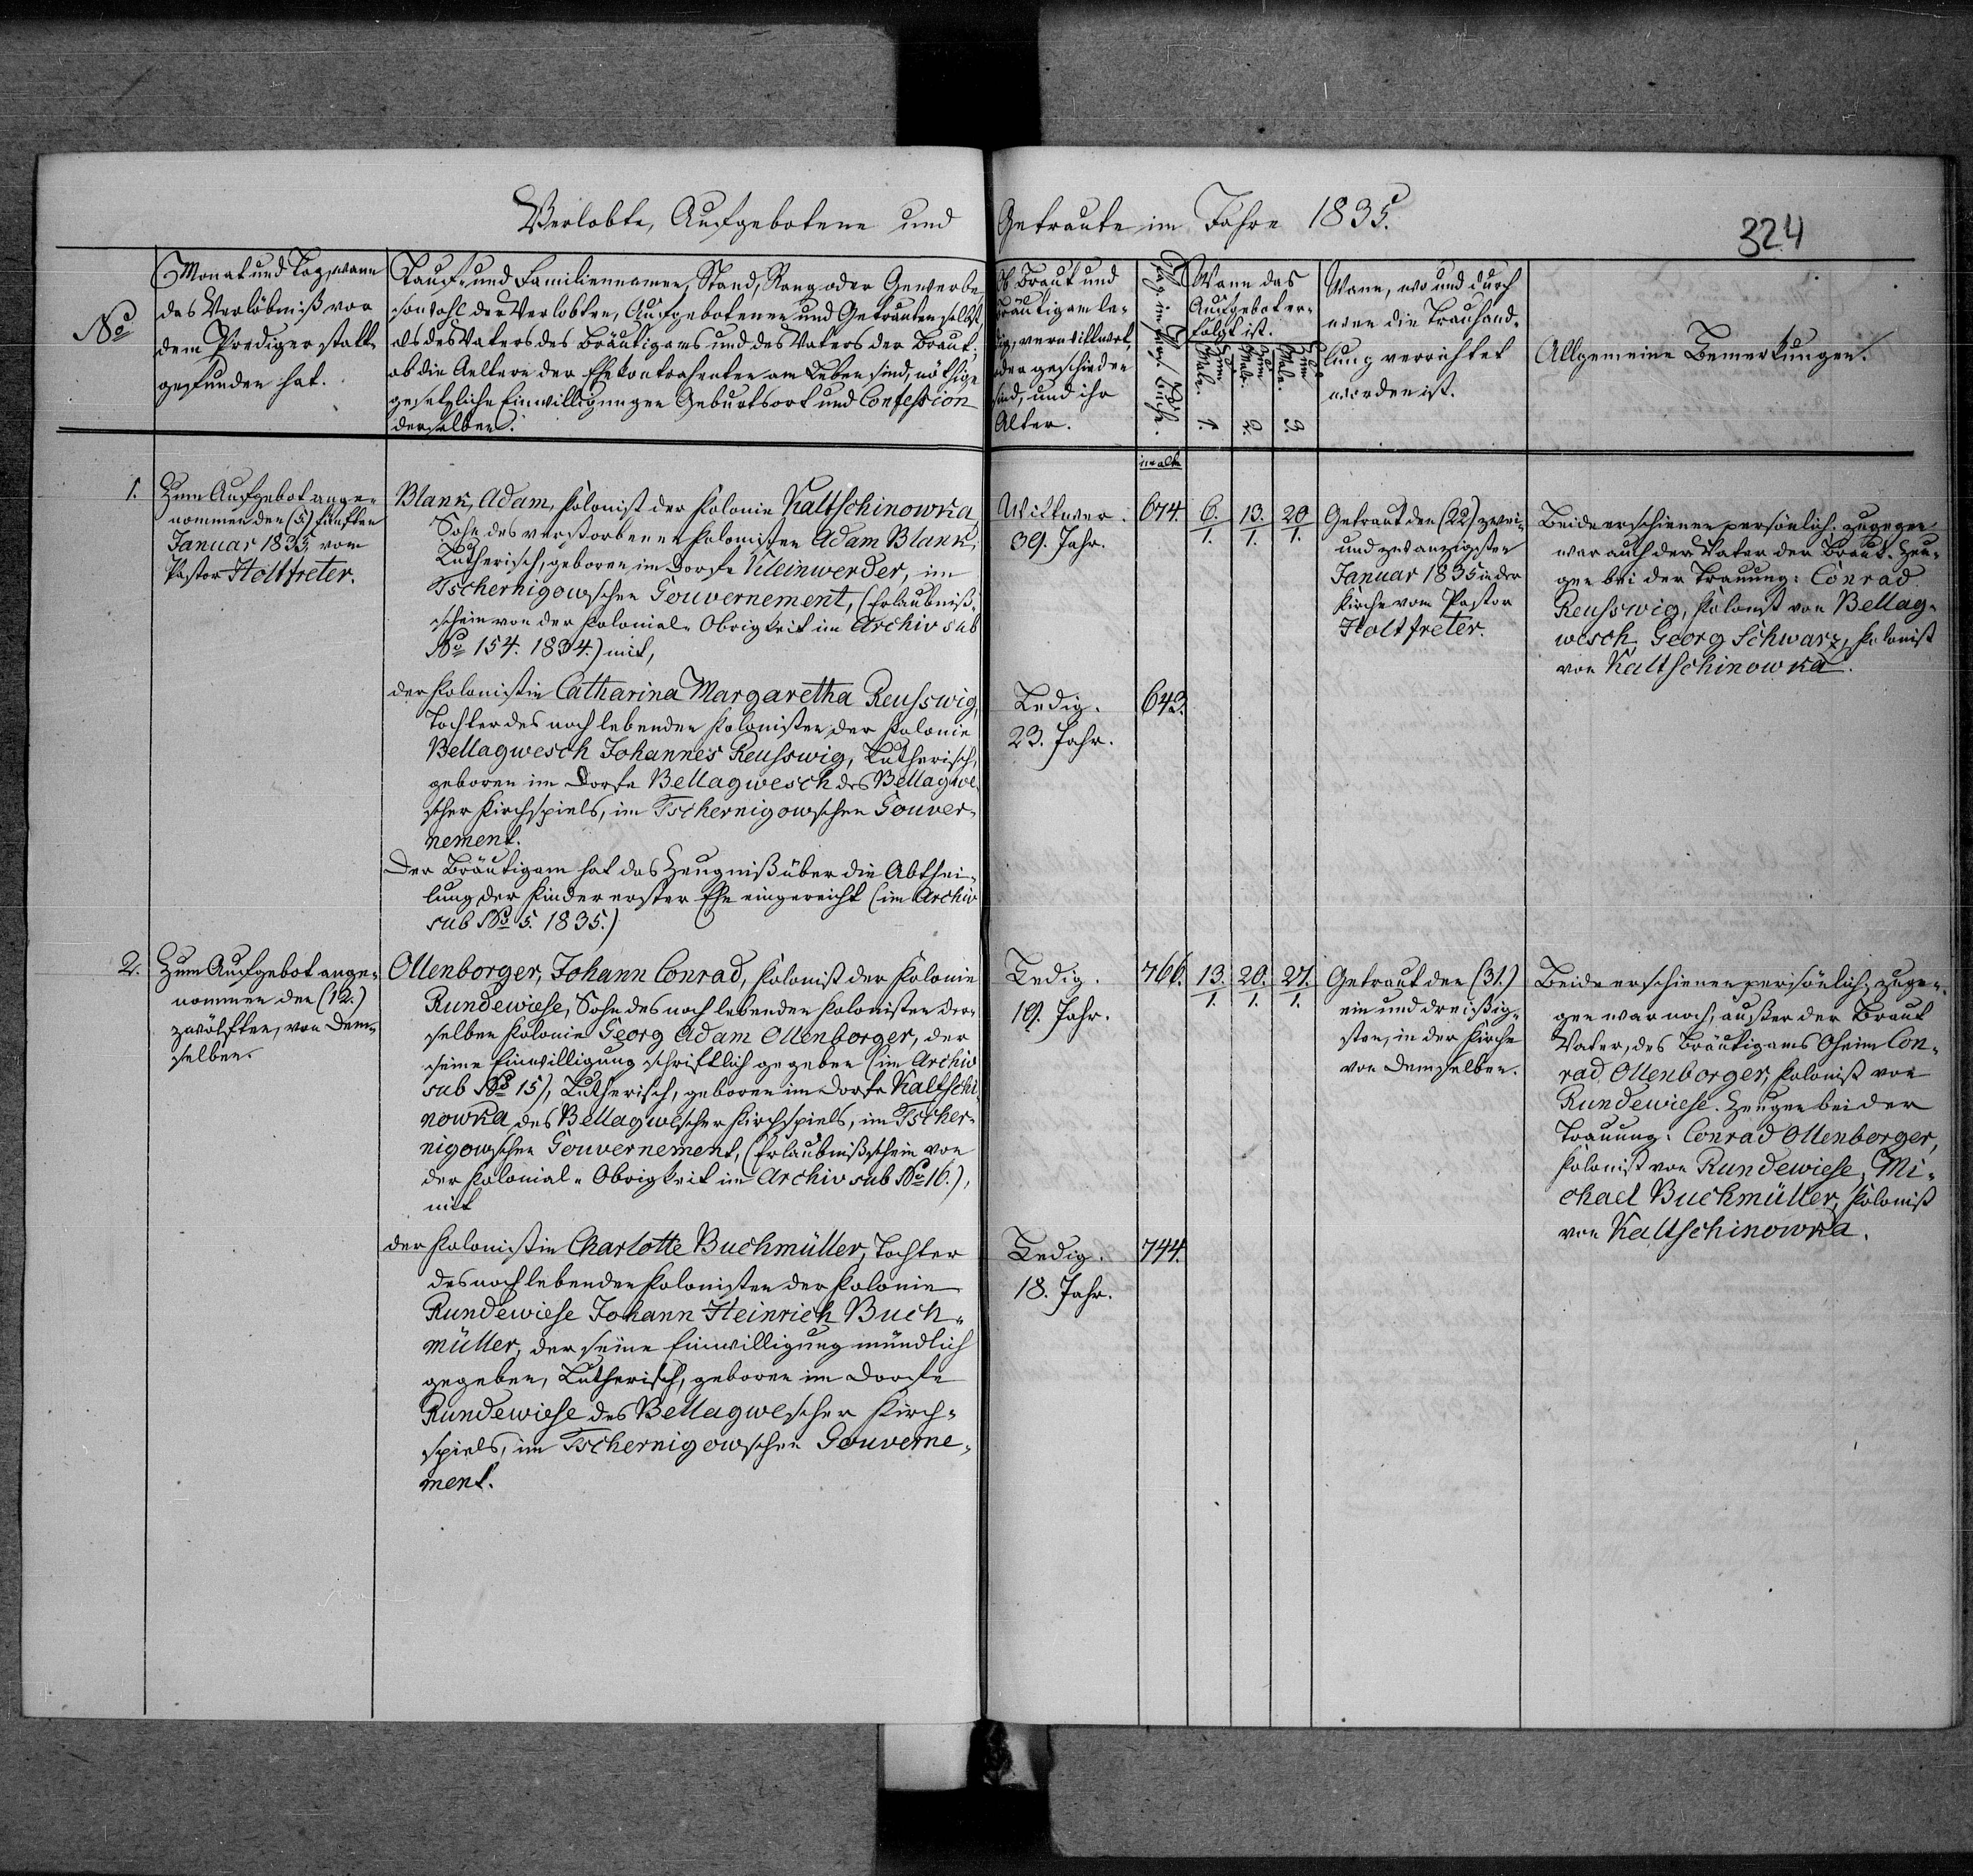 Verlobte, Aufgebotene und Getraute im Jahre 1835.
324
No
Monat und Tag, wann
das Verlöbniß vor
dem Prediger statt-
gefunden hat.
Tauf- und Familiennamen, Stand, Rang oder Gewerbe,
sowohl der Verlobten, Aufgebotenen und Getrauten selbst,
als des Vaters des Bräutigams und des Vaters der Braut;
ob die Aeltern der Ehekontrahenten am Leben sind, nöthige
gesetzliche Einwilligungen Geburtsort und Confession
derselben.
Ob Braut und
Bräutigam le-
dig, verwittwet,
oder geschieden
sind, und ihr
Alter.
im alten
Wann das
Aufgebot er-
folgt ist.
Zum 1. Male.
Zum 2. Male.
Zum 3. Male.
Wann, wo und durch
wen die Trauhand-
lung verrichtet
worden ist.
Allgemeine Bemerkungen.
1.
Zum Aufgebot ange-
nommen den (5.) fünften
Januar 1835, vom
Pastor Holtfreter.
Blank, Adam, Kolonist der Kolonie Kaltschinowka,
Sohn des verstorbenen Kolonisten Adam Blank,
Lutherisch, geboren im Dorfe Kleinwerder, im
Tschernigowschen Gouvernement, (Erlaubniß-
schein von der Kolonial-Obrigkeit im Archiv sub
No 154. 1834.) mit,
der Kolonistin Catharina Margaretha Reusswig,
Tochter des noch lebenden Kolonisten der Kolonie
Bellagwesch Johannes Reusswig, Lutherisch,
geboren im Dorfe Bellagwesch des Bellagwe-
scher Kirchspiels, im Tschernigowschen Gouver-
nement.
Der Bräutigam hat das Zeugniß über die Abthei-
lung der Kinder erster Ehe eingereicht (im Archiv
sub No 5. 1835.)
Wittwer.
39. Jahr.
674.
6./1.
13./1.
20./1.
Ledig.
23. Jahr.
643.
Getraut den (22) zwei-
und zwanzigsten
Januar 1835 in der
Kirche vom Pastor
Holtfreter.
Beide erschienen persönlich. zugegen
war auch der Vater der Braut. Zeu-
gen bei der Trauung: Conrad
Reusswig, Kolonist von Bellag-
wesch, Georg Schwarz, Kolonist
von Kaltschinowka.
2.
Zum Aufgebot ange-
nommen den (12.)
zwölften, von dem-
selben.
Ollenborger, Johann Conrad, Kolonist der Kolonie
Rundewiese, Sohn des noch lebenden Kolonisten der-
selben Kolonie Georg Adam Ollenborger, der
seine Einwilligung schriftlich gegeben (im Archiv
sub No 15), Lutherisch, geboren im Dorfe Kaltschi-
nowka des Bellagwescher Kirchspiels, im Tscher-
nigowschen Gouvernement, (Erlaubnißschein von
der Kolonial-Obrigkeit im Archiv sub No 16.),
mit
der Kolonistin Charlotte Buchmüller, Tochter
des noch lebenden Kolonisten der Kolonie
Rundewiese Johann Heinrich Buch-
müller, der seine Einwilligung mündlich
gegeben, Lutherisch, geboren im Dorfe
Rundewiese des Bellagwescher Kirch-
spiels, im Tschernigowschen Gouverne-
ment.
Ledig.
19. Jahr.
766.
13./1.
20./1.
27./1.
Ledig.
18. Jahr.
744.
Getraut den (31.)
ein und dreißig-
sten, in der Kirche
von demselben.
Beide erschienen persönlich, zuge-
gen war noch, außer der Braut
Vater, des Bräutigams Oheim Con-
rad Ollenborger, Kolonist von
Rundewiese. Zeugen bei der
Trauung: Conrad Ollenborger,
Kolonist von Rundewiese, Mi-
chael Buchmüller, Kolonist
von Kaltschinowka.